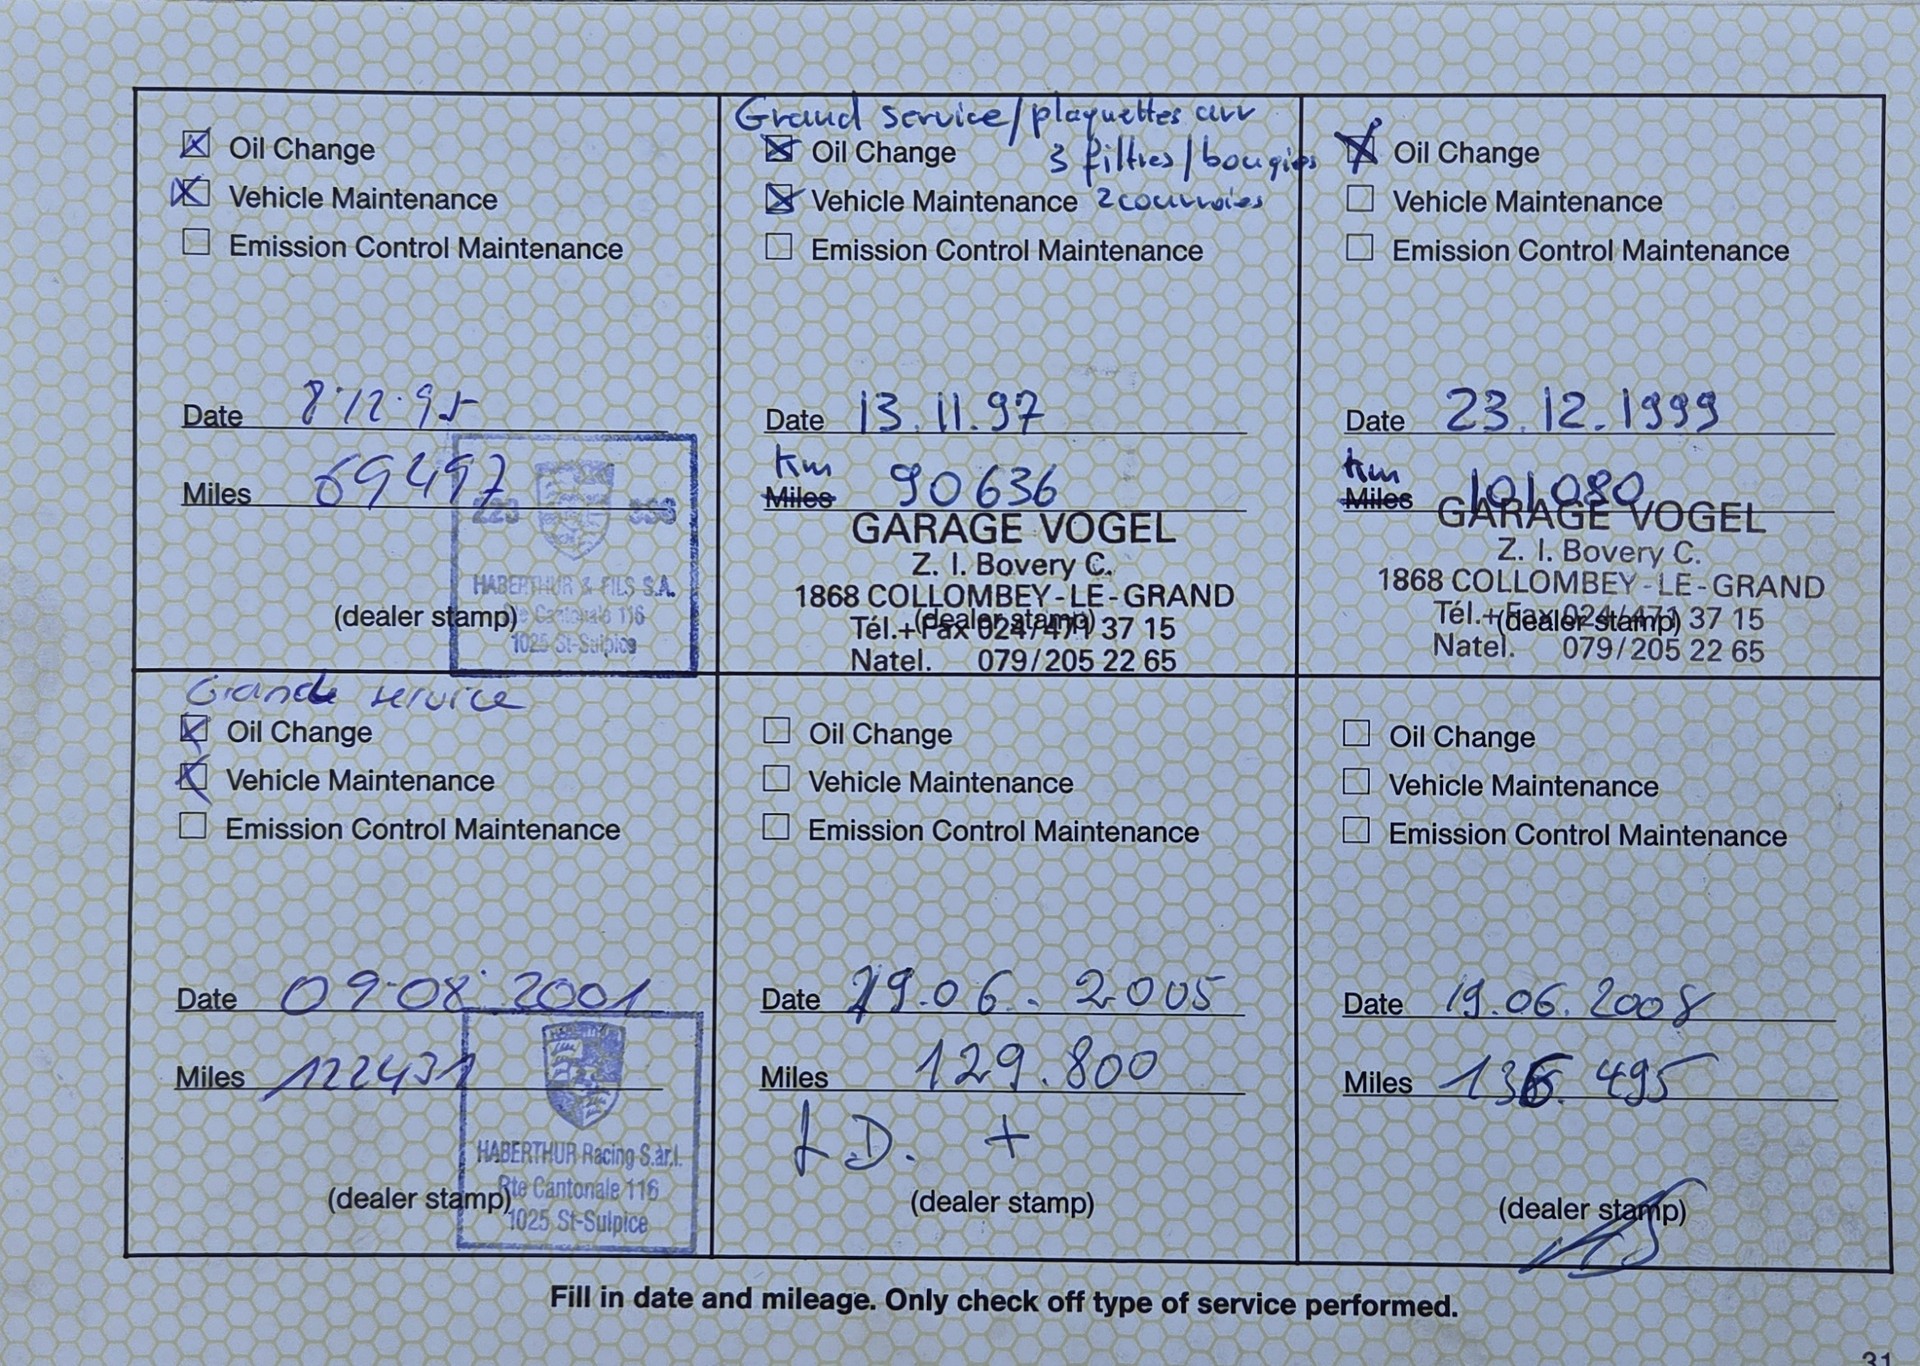 Oil Change
Vehicle Maintenance
Emission Control Maintenance
Date 8.12.95
Miles 69497
HABERTHUR & FILS S.A.
Rte Cantonale 116
1025 St-Sulpice
(dealer stamp)
Grand service/plaquettes arr
Oil Change 3 filtres/bougies
Vehicle Maintenance 2 courroies
Emission Control Maintenance
Date 13.11.97
Km
Miles 90636
GARAGE VOGEL
Z. I. Bovery C.
1868 COLLOMBEY-LE-GRAND
(dealer stamp)
Tél.+Fax 024/471 37 15
Natel. 079/205 22 65
Oil Change
Vehicle Maintenance
Emission Control Maintenance
Date 23.12.1999
Km
Miles 101080
GARAGE VOGEL
Z. I. Bovery C.
1868 COLLOMBEY-LE-GRAND
Tél.+Fax 024/471 37 15
(dealer stamp)
Natel. 079/205 22 65
Grande service
Oil Change
Vehicle Maintenance
Emission Control Maintenance
Date 09.08.2001
Miles 122431
HABERTHUR Racing S.àr.l.
Rte Cantonale 116
(dealer stamp)
1025 St-Sulpice
Oil Change
Vehicle Maintenance
Emission Control Maintenance
Date 29.06.2005
Miles 129.800
(dealer stamp)
Oil Change
Vehicle Maintenance
Emission Control Maintenance
Date 19.06.2008
Miles 136.495
(dealer stamp)
Fill in date and mileage. Only check off type of service performed.
31